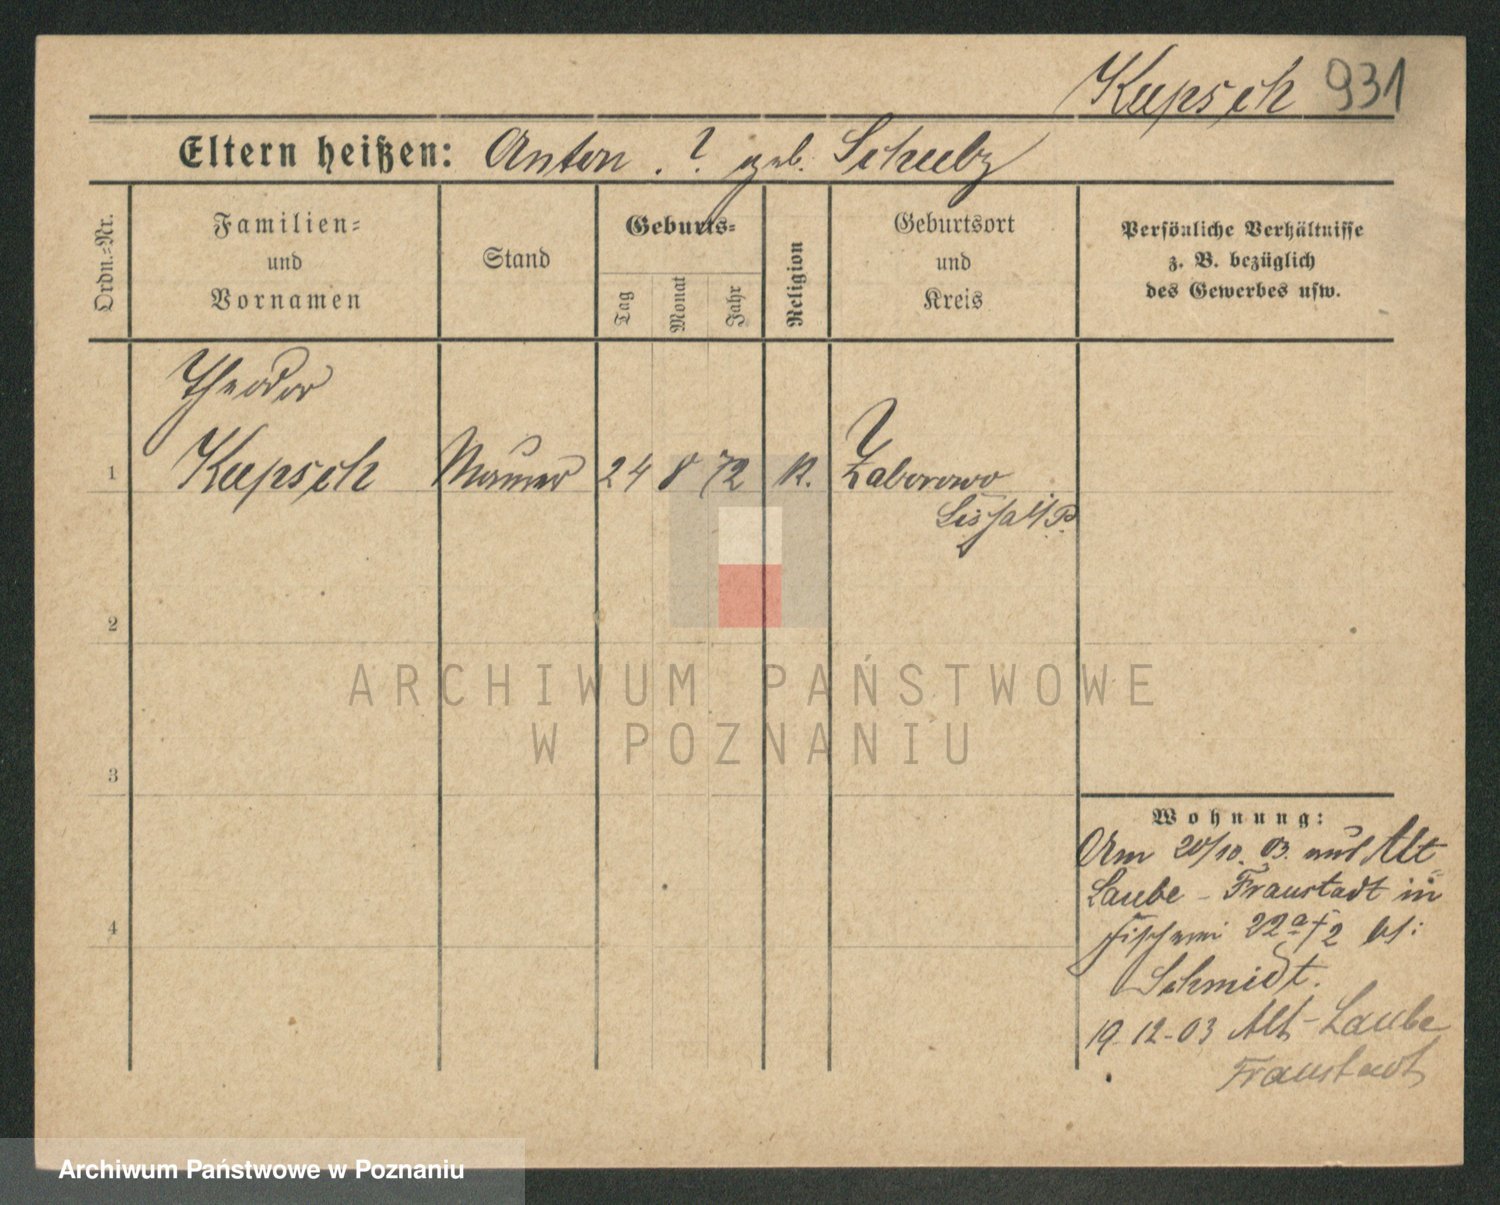 Kupsch 931
Eltern heißen: Anton . ? geb. Schulz
Ordn.=Nr.
Familien=
und
Vornamen
Stand
Geburts=
Tag
Monat
Jahr
Religion
Geburtsort
und
Kreis
Persönliche Verhältnisse
z. B. bezüglich
des Gewerbes usw.
Theodor
1 Kupsch Maurer 24 8 72 K. Zaborowo
Lissa i/P.
2
3
4
Wohnung:
Am 20/10. 03. aus Alt
Laube - Fraustadt in
Fischerei 22a
Schmidt.
19-12-03 Alt-Laube
Fraustadt
ARCHIWUM PAŃSTWOWE
W POZNANIU
Archiwum Państwowe w Poznaniu